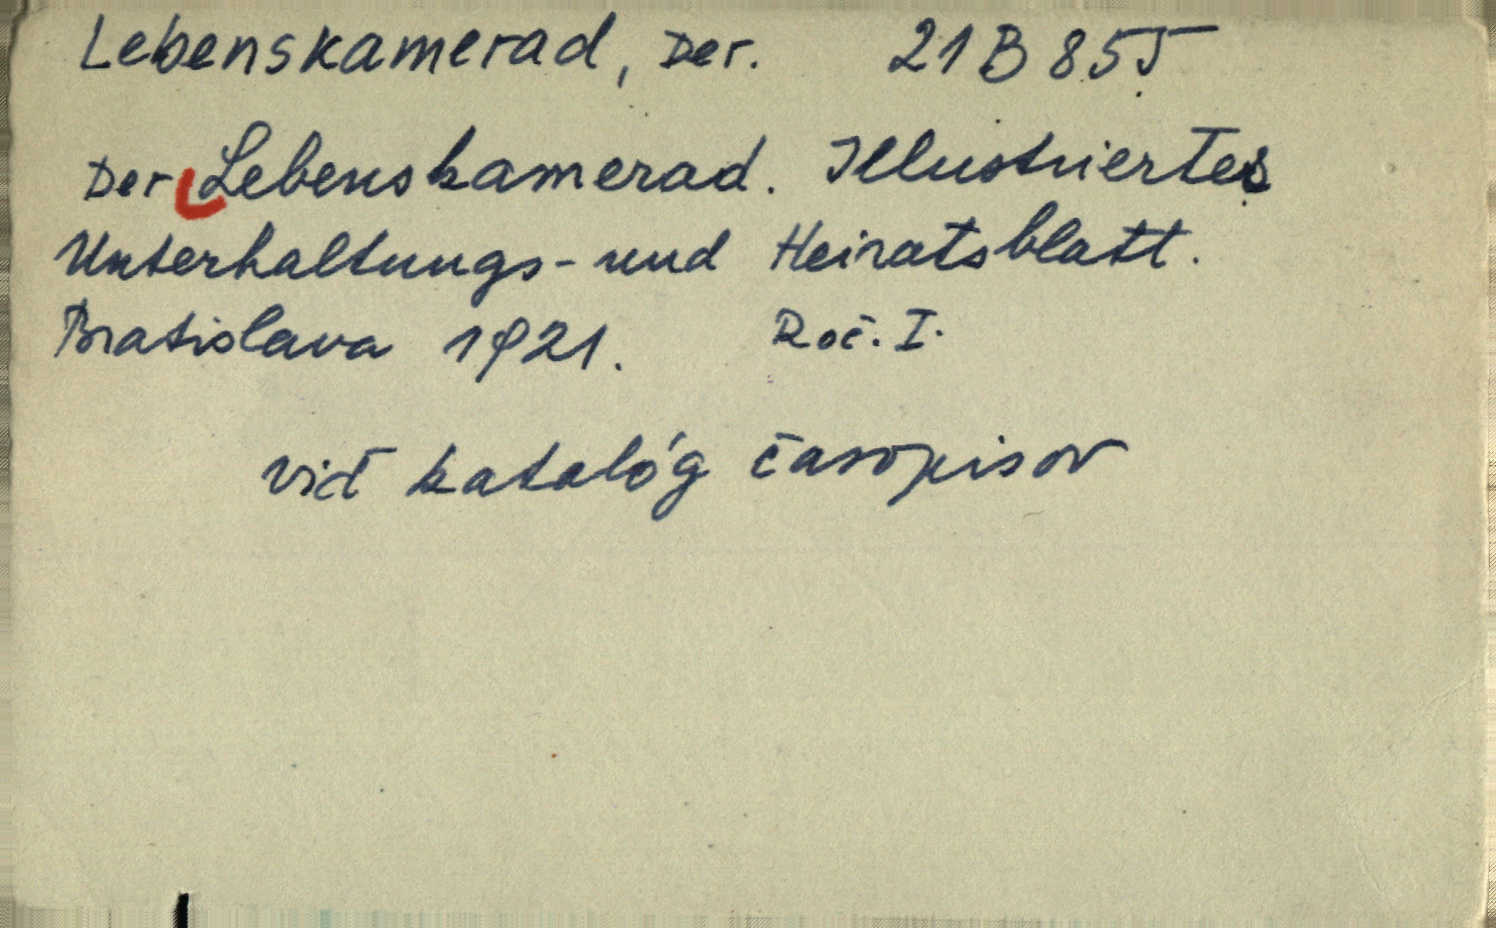 Lebenskamerad, Der. 21 B 855
Der Lebenskamerad. Illustriertes
Unterhaltungs- und Heiratsblatt.
Bratislava 1921. Roč. I.
viď katalóg časopisov